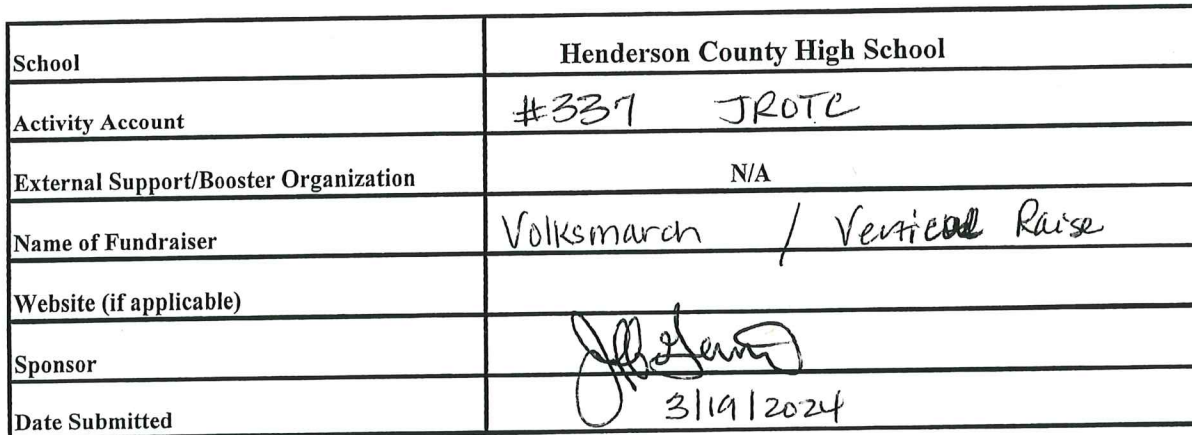 School Henderson County High School
Activity Account #337 JROTC
External Support/Booster Organization N/A
Name of Fundraiser Volksmarch / Vertical Raise
Website (if applicable)
Sponsor
Date Submitted 3/19/2024